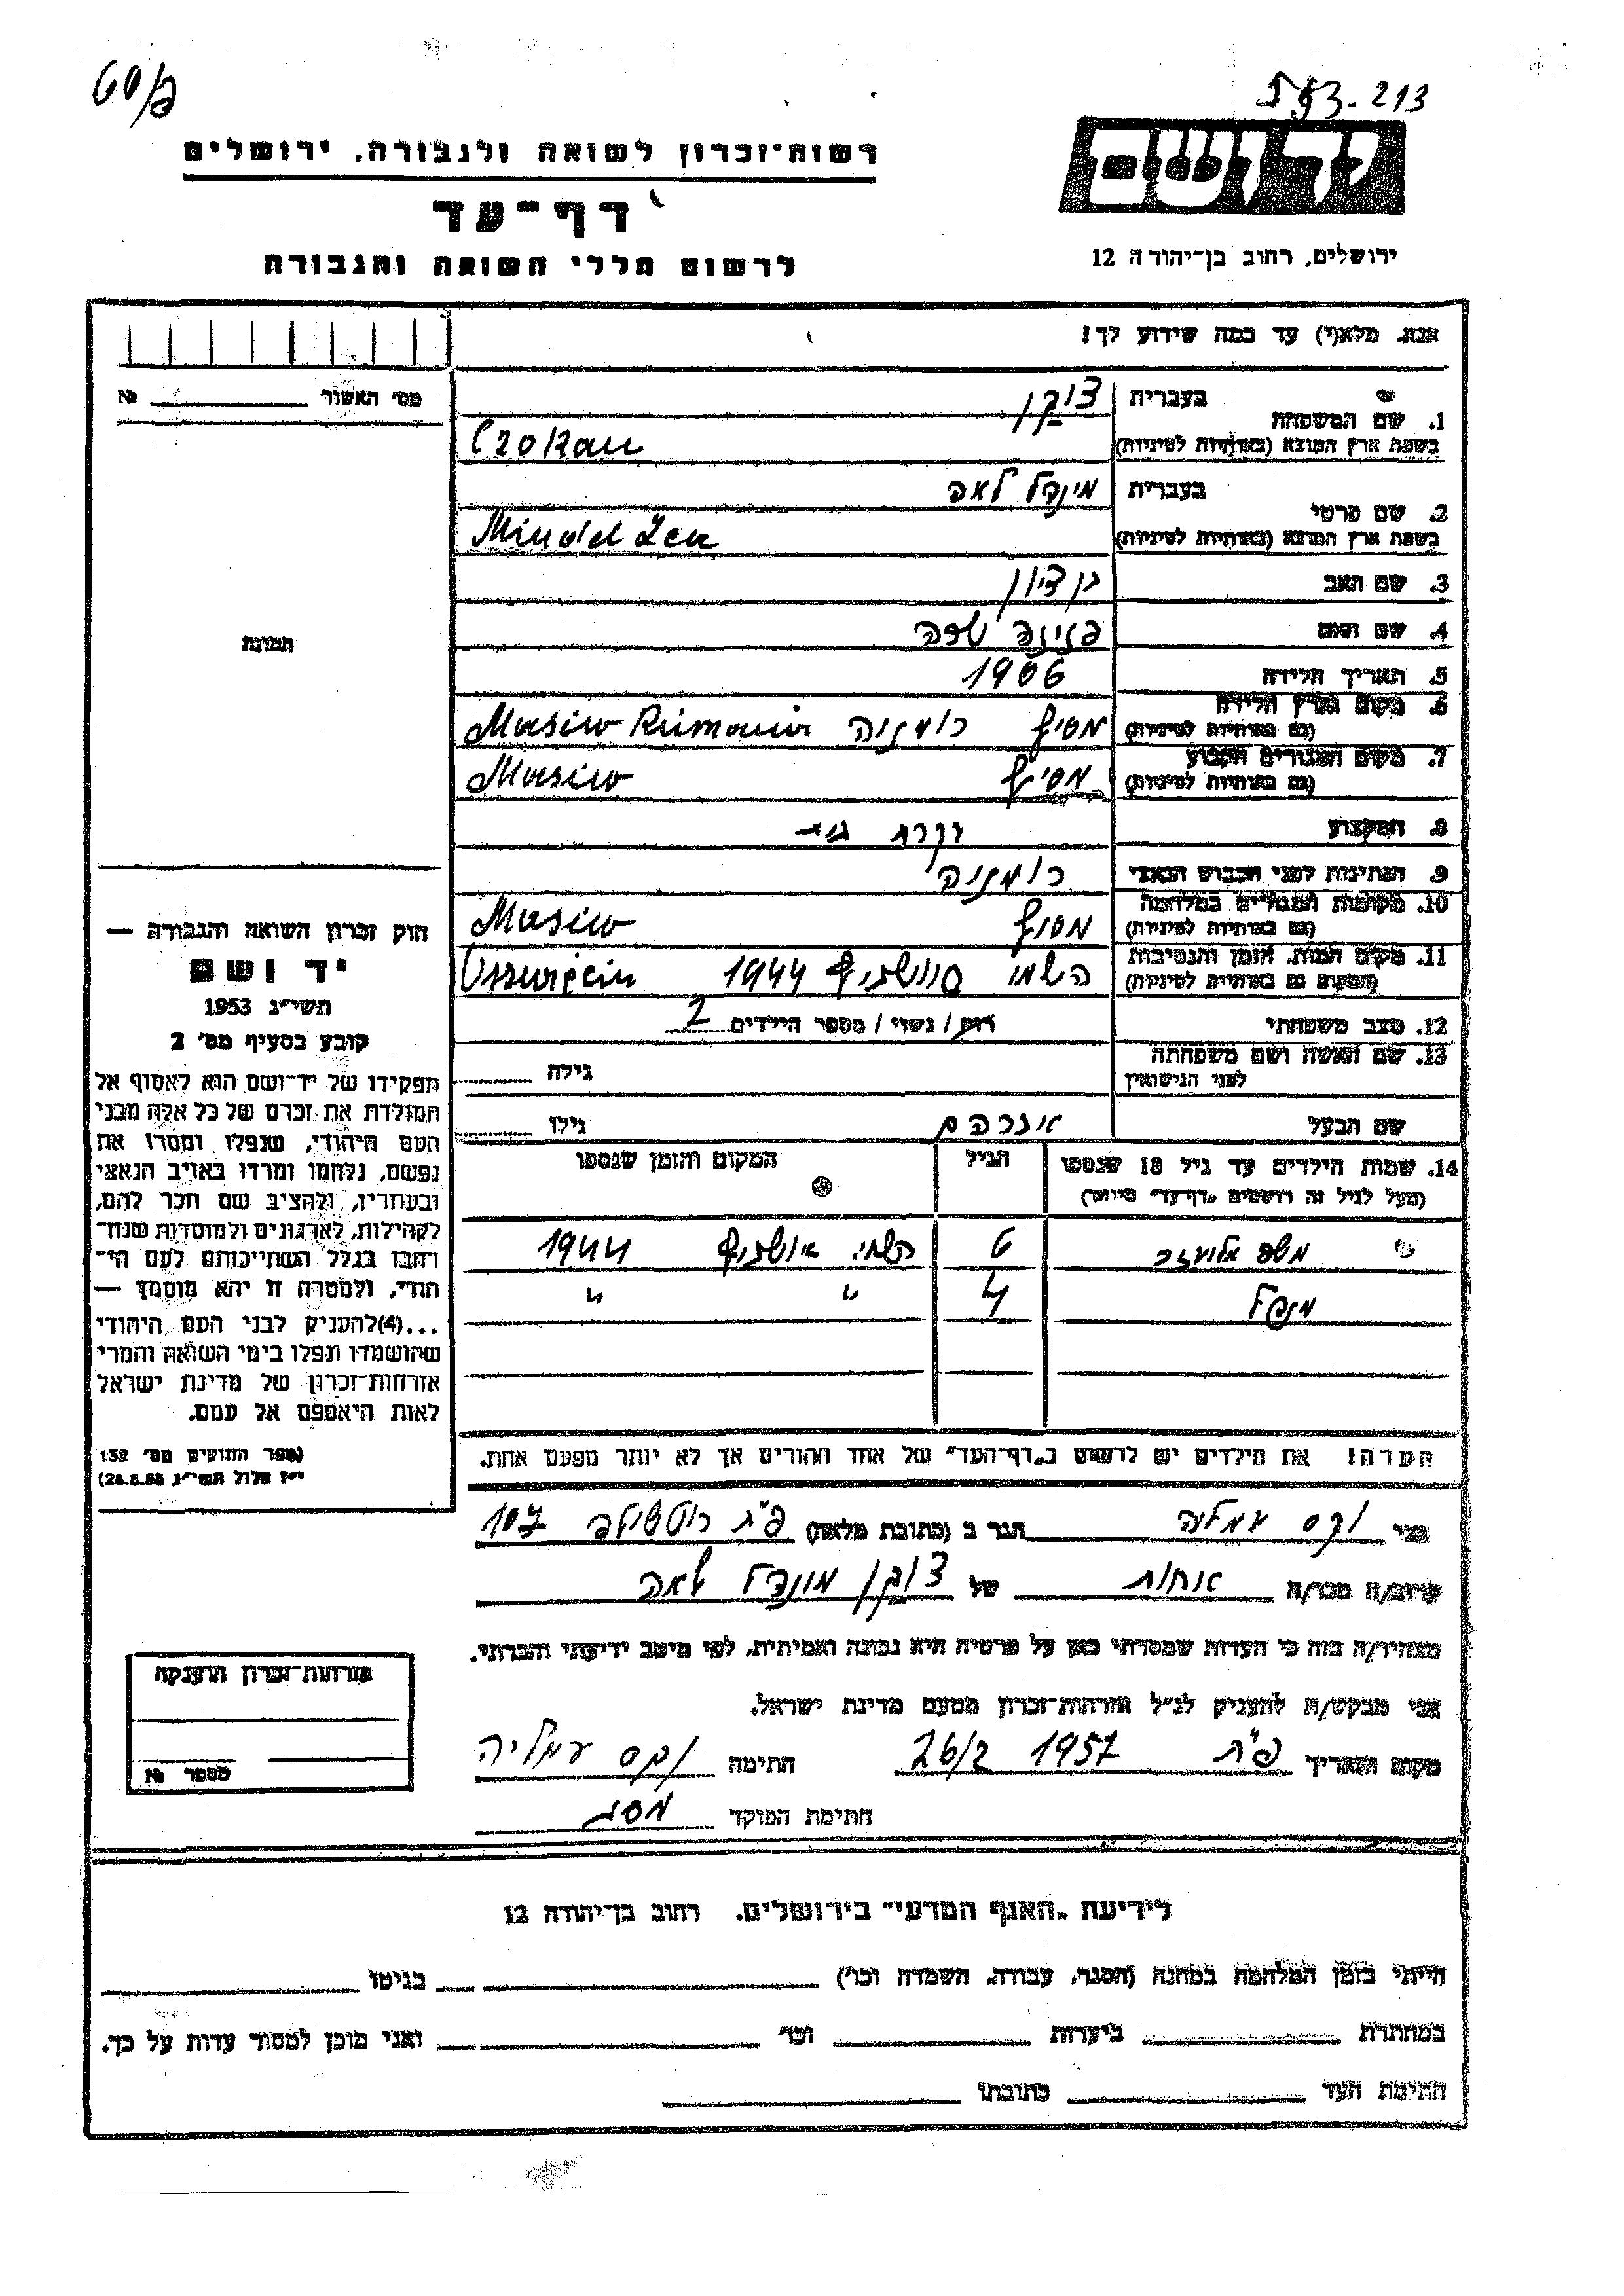 60/ב
553-213
רשות-זכרון לשואה ולגבורה, ירושלים
יד ושם
דף-עד
לרשום חללי השואה והגבורה
ירושלים, רחוב בן-יהודה 12
אנא, מלא(י) עד כמה שידוע לך!
מס' האשור № 
1. שם המשפחה בעברית צוקן
בשפת ארץ המוצא (באותיות לטיניות) Czokan
2. שם פרטי בעברית מינדל לאה
בשפת ארץ המוצא (באותיות לטיניות) Mindel Lea
3. שם האב בן ציון
4. שם האם
5. תאריך הלידה 1906
6. מקום וארץ הלידה (גם באותיות לטיניות) מסיף רומניה Masiw Rumania
7. מקום המגורים הקבוע (גם באותיות לטיניות) מסיף Masiw
8. המקצוע עקרת בית
9. הנתינות לפני הכבוש הנאצי רומניה
10. מקומות המגורים במלחמה (גם באותיות לטיניות) מסיף Masiw
11. מקום המות, הזמן והנסיבות (המקום גם באותיות לטיניות) 1944
12. מצב משפחתי רווק / נשוי / מספר הילדים 2
13. שם האשה ושם משפחתה לפני הנישואין גילה
שם הבעל אברהם גילו
14. שמות הילדים עד גיל 18 שנספו הגיל המקום והזמן שנספו
(מעל לגיל זה רושמים "דף-עד" מיוחד)
משה אליעזר 6 1944
4 " "
הערה! את הילדים יש לרשום ב"דף-העד" של אחד ההורים אך לא יותר מפעם אחת.
תמונה
חוק זכרון השואה והגבורה —
יד ושם
תשי"ג 1953
קובע בסעיף מס' 2
תפקידו של יד-ושם הוא לאסוף אל
המולדת את זכרם של כל אלה מבני
העם היהודי, שנפלו ומסרו את
נפשם, נלחמו ומרדו באויב הנאצי
ובעוזריו, ולהציב שם וזכר להם,
לקהילות, לארגונים ולמוסדות שנח־
רבו בגלל השתייכותם לעם הי־
הודי, ולמטרה זו יהא מוסמך —
...(4) להעניק לבני העם היהודי
שהושמדו ונפלו בימי השואה והמרי
אזרחות-זכרון של מדינת ישראל
לאות היאספם אל עמם.
(ספר החוקים מס' 132
י"ז אלול תשי"ג 28.8.53)
אני וקס עמליה הגר ב (כתובת מלאה) פ"ת רוטשילד 107
קרוב/ה מכר/ה אחות של צוקן מינדל לאה
מצהיר/ה בזה כי העדות שמסרתי כאן על פרטיה היא נכונה ואמיתית, לפי מיטב ידיעתי והכרתי.
אני מבקש/ת להעניק לנ"ל אזרחות-זכרון מטעם מדינת ישראל.
מקום ותאריך פ"ת 1957 26/2 חתימה וקס עמליה
חתימת הפוקד
אזרחות-זכרון הוענקה
מספר №
לידיעת "האגף המדעי" בירושלים. רחוב בן-יהודה 12
הייתי בזמן המלחמה במחנה (הסגר, עבודה, השמדה וכו') בגיטו
במחתרת ביערות וכו' ואני מוכן למסור עדות על כך.
חתימת העד כתובתו